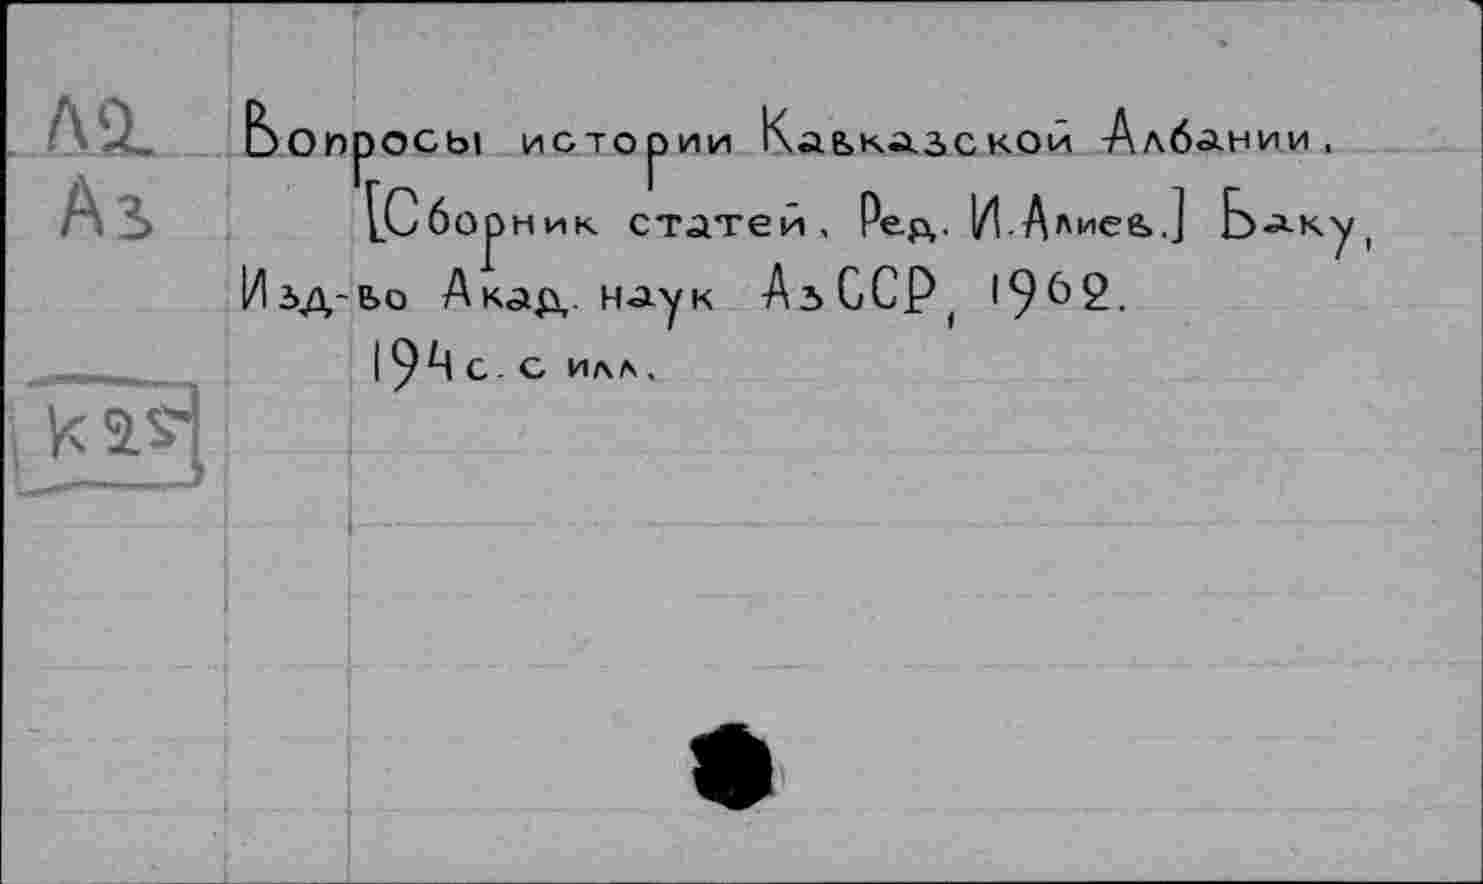 Л2
Вопросы истории Кавказской Албании.
Аз
[Сборник статей, Ред. И. Алиев.] Баку,
Изд-во Акад. наук АзССР, 1962.
194 с. с илл.